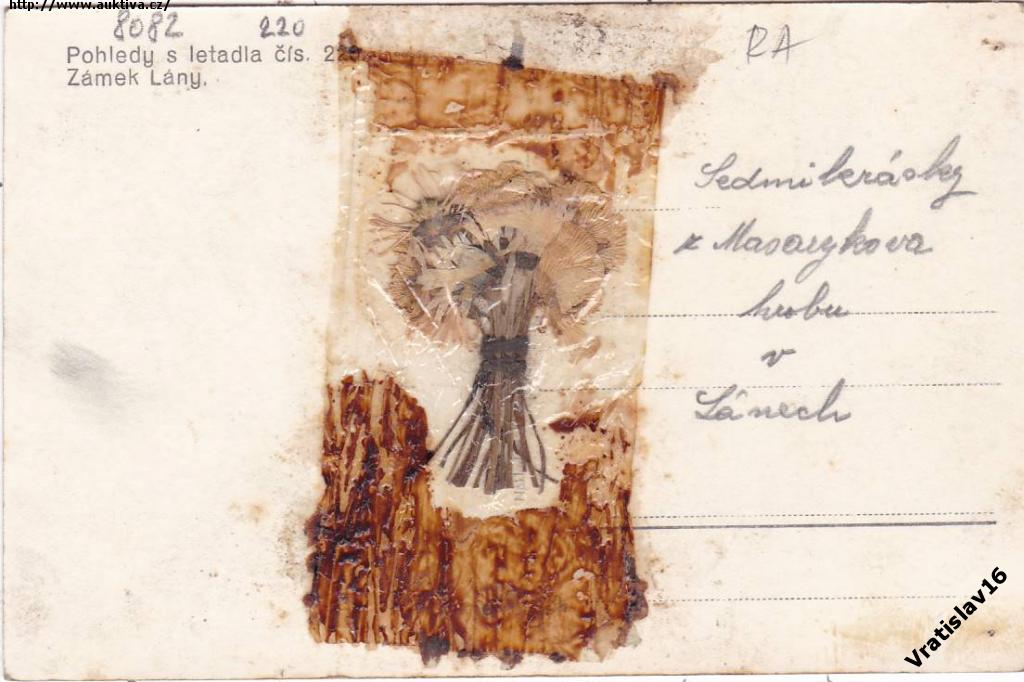 http://www.auktiva.cz/
8082 220
Pohledy s letadla čís. 220
Zámek Lány.
RA
Sedmikrásky
z Masarykova
hrobu
v
Lánech
Vratislav16